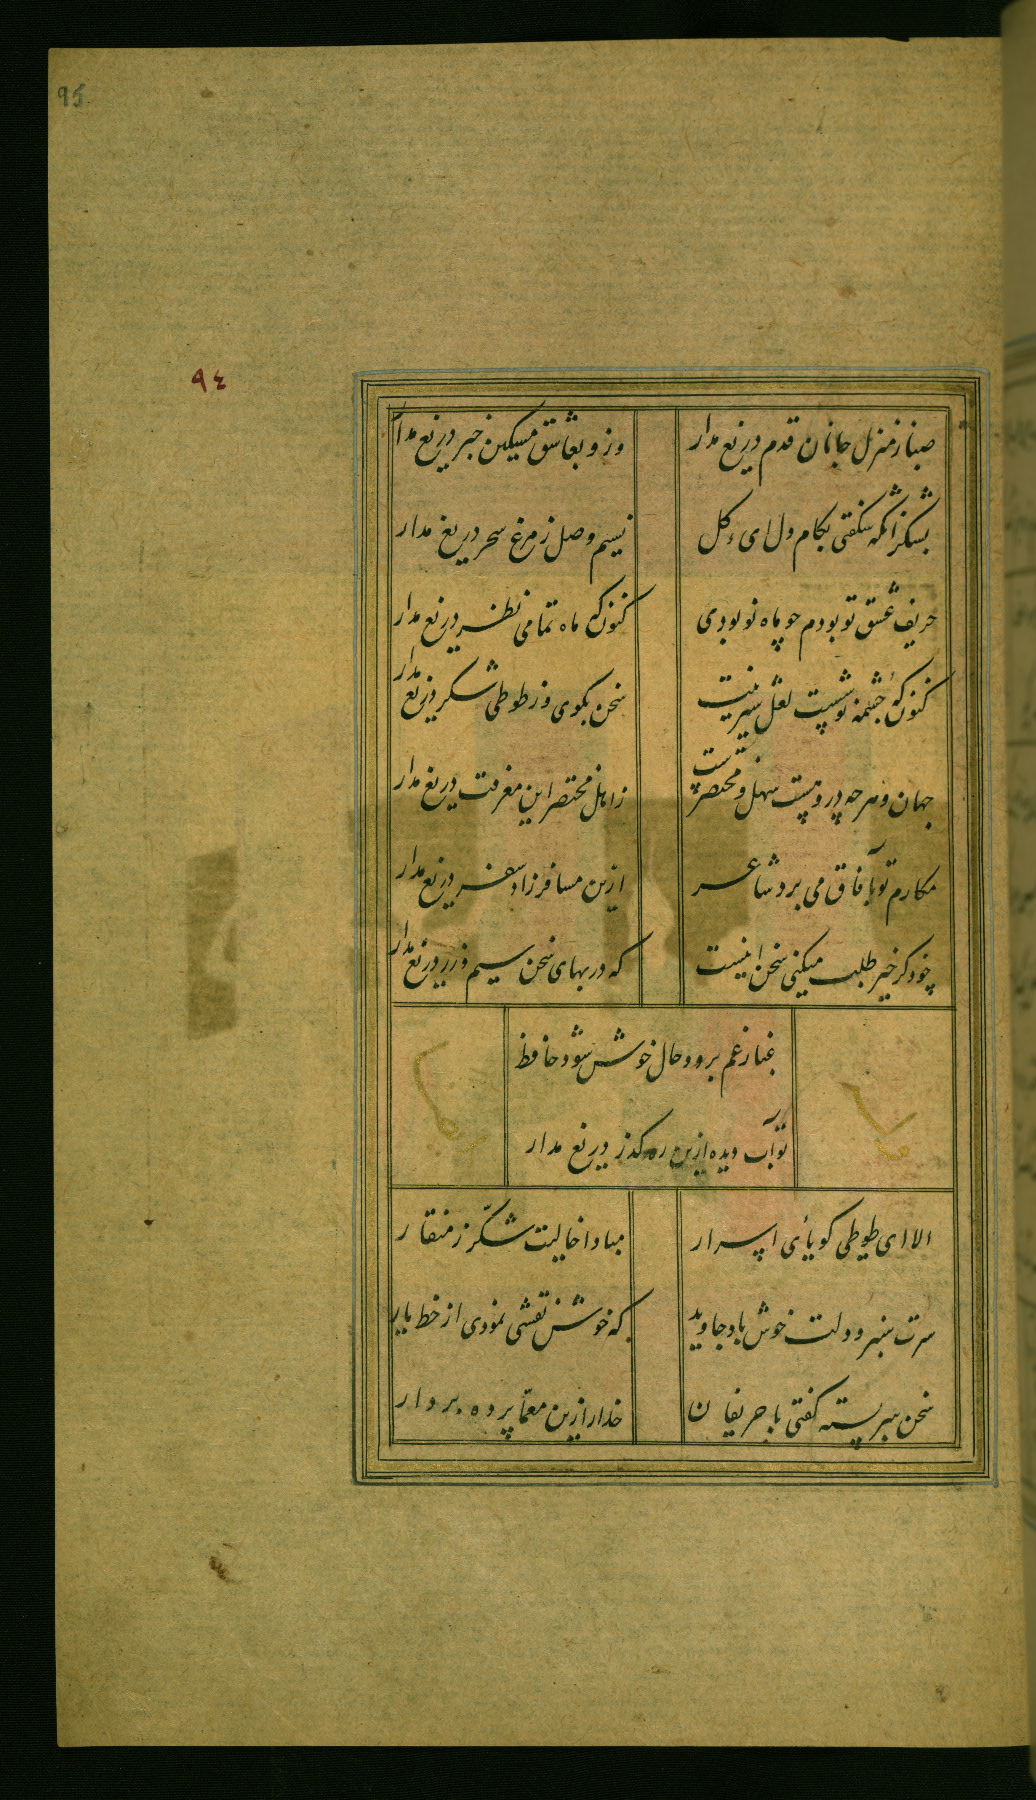 95
٩٤
صبا ز منزل جانان قدم دریغ مدار
وز و بعاشق مسکین خبر دریغ مدار
بشکر انکه شکفتی بکام دل ای کل
نسیم وصل ز مرغ سحر دریغ مدار
حریف عشق تو بودم چو ماه نو بودی
کنون که ماه تمامی نظر دریغ مدار
کنون که چشمه نوشست لعل شیرینت
سخن بکوی و ز طوطی شکر دریغ مدار
جهان و هرچه درو هست سهل و مختصرست
ز اهل مختصر این معرفت دریغ مدار
مکارم تو بآفاق می برد شاعر
ازین مسافر زاد سفر دریغ مدار
چو ذکر خیر طلب میکنی سخن اینست
که در بهای سخن سیم و زر دریغ مدار
غبار غم برود حال خوش شود حافظ
تو آب دیده ازین ره کذر دریغ مدار
الا ای طوطی کویای اسرار
مبادا خالیت شکّر ز منقار
سرت سبز و دلت خوش باد جاوید
که خوش نقشی نمودی از خط یار
سخن سر بسته کفتی با حریفان
خدارا زین معمّا پرده بردار